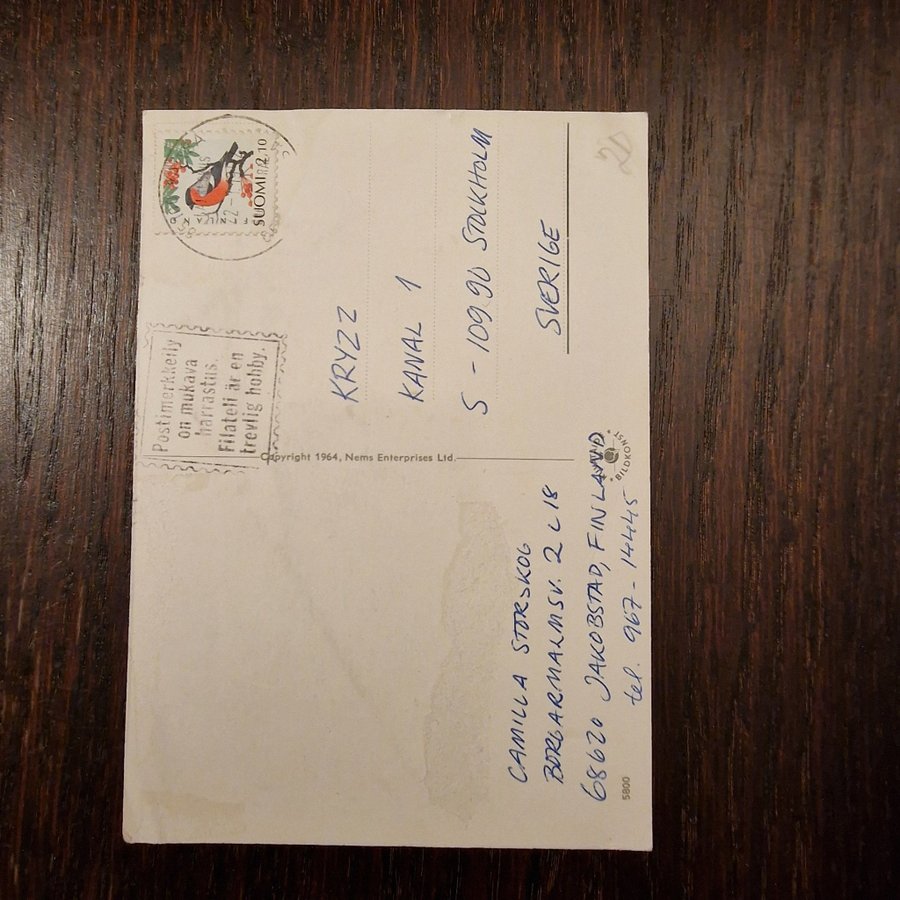 SUOMI 2.10
FINLAND
Postimerkkeily
on mukava
harrastus.
Filateli är en
trevlig hobby.
KRYZZ
KANAL 1
S - 109 90 STOCKHOLM
SVERIGE
20
Copyright 1964, Nems Enterprises Ltd.
BILDKONST
CAMILLA STORSKOG
BORGARMALMSV. 2 L 18
68620 JAKOBSTAD, FINLAND
tel. 967 - 14445
5800